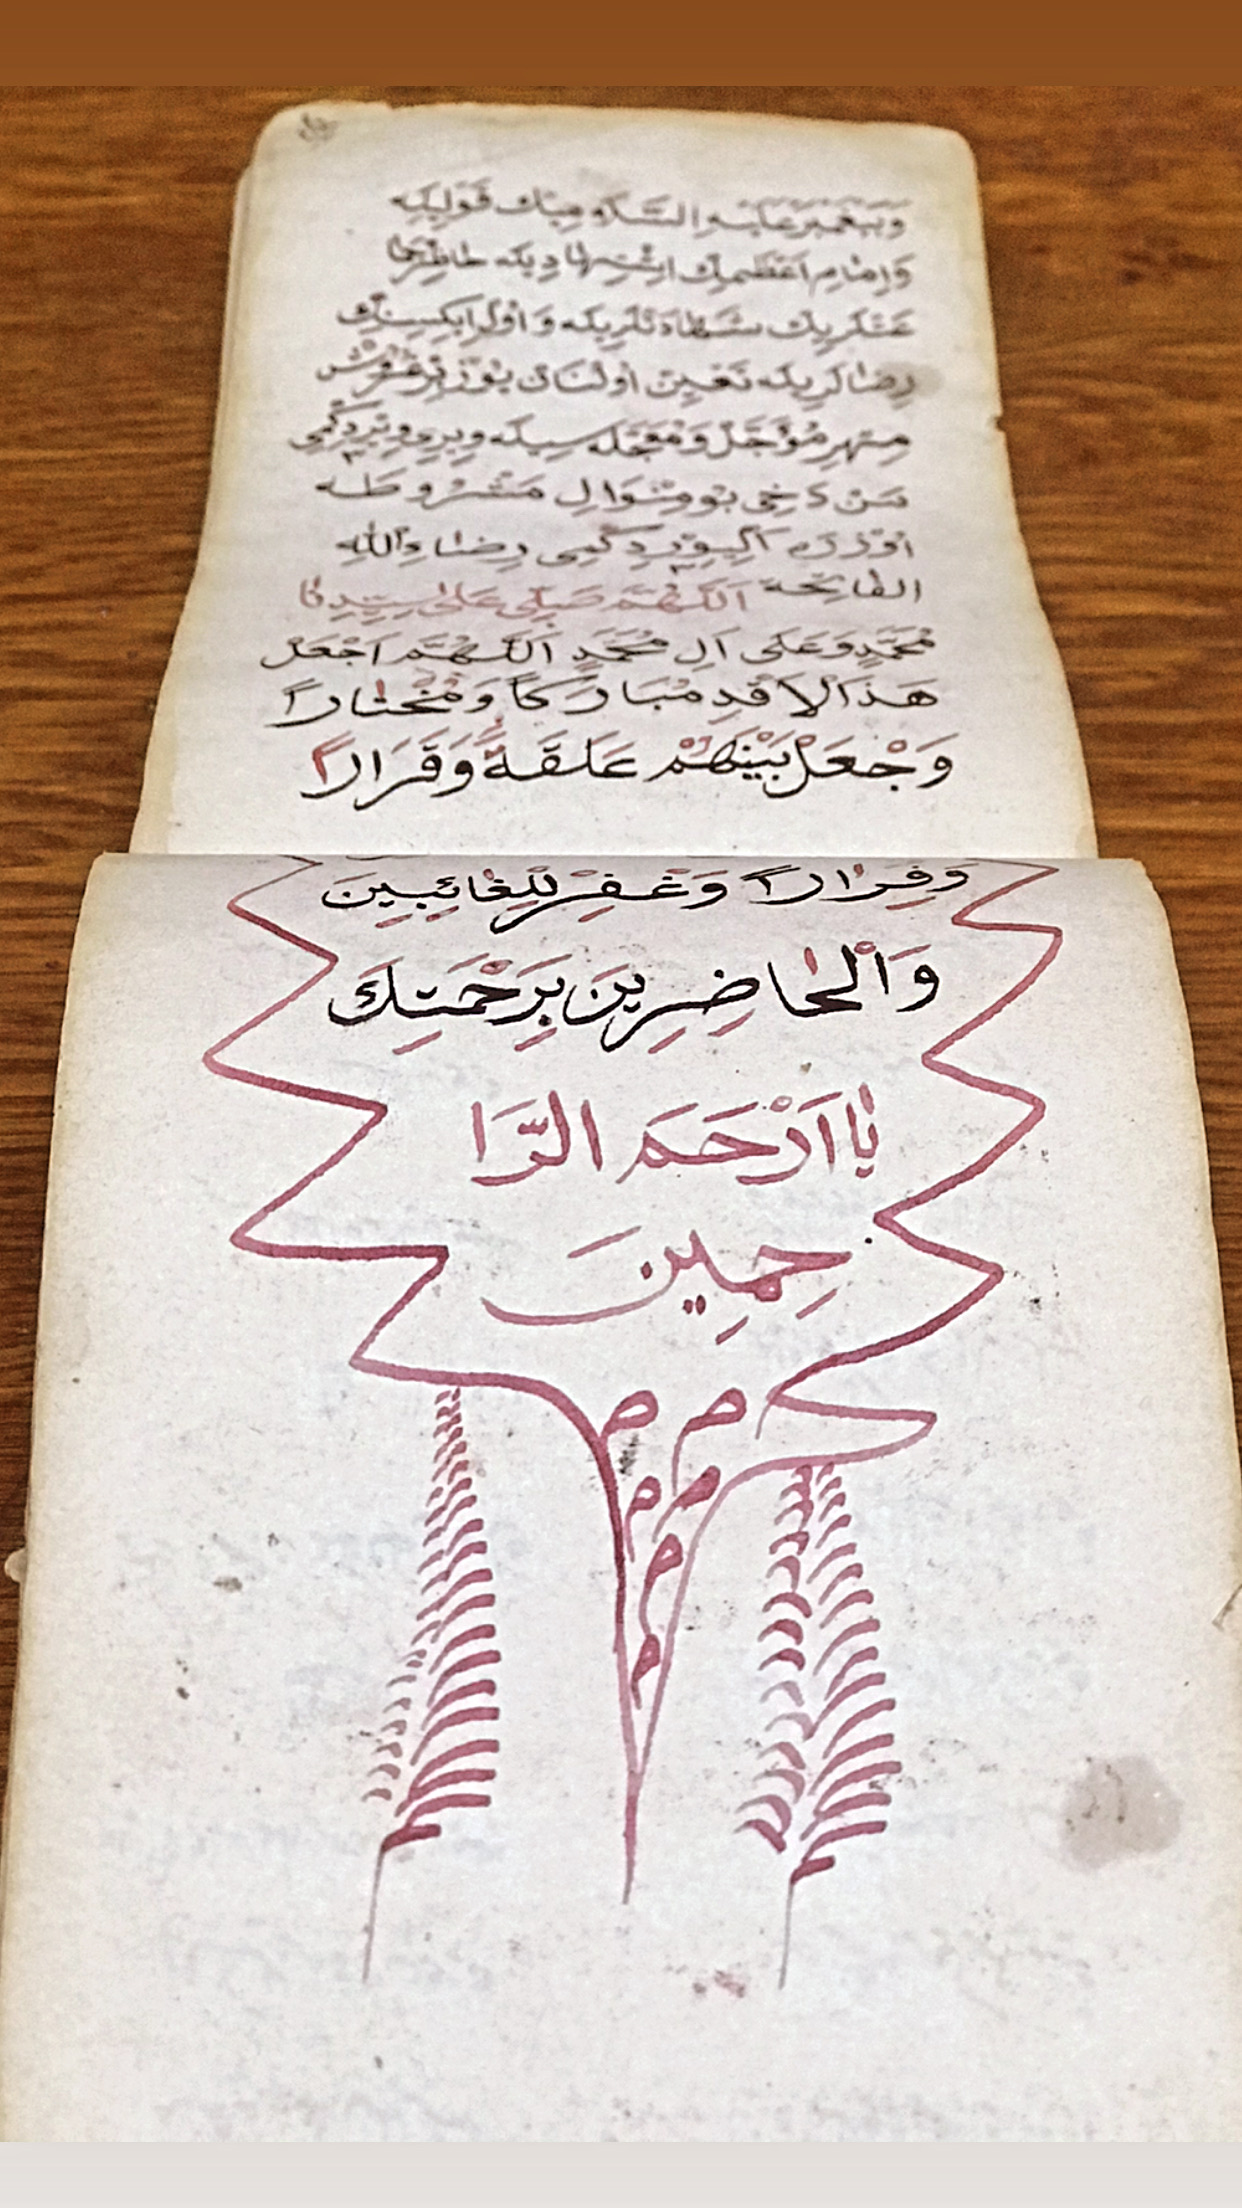 وَپيغمبر عليه السلامڭ قَولِيلَه
وَاِمَامِ اَعْظَمِڭ اِجْتِهَادِيلَه حاظِر جما
عَتلَرِيڭ شَهَادَتْلَرِيلَه وَ اَوْلَر ايكِسِنِڭ
رِضالَرِيلَه تَعْيِنْ اولنان يوز بر غروش
مِهرِ مُؤَجَّلْ وَ مُعَجَّلَه سيله ويرى ويردڭمى
سَنْ دَخِى بو مِنْوَالِ مَشْرُوطَه
اوزره آليويردڭمى رِضاءِ الله
الفاتحة اَللّٰهُمَّ صَلِّى عَلٰى سَيِّدِنَا
مُحَمَّدٍ وَعَلَى اٰلِ مُحَمَّدٍ اَللّٰهُمَّ اجْعَلْ
هَذَا لاَقدِ مُبَارَكاً وَمُخْتاراً
وَجْعَلْ بَيْنَهُمْ عَلَقَةً وَقَرَاراً
وَفِرَاراً وَغْفِرْ لِلْغائِبِينَ
وَالْحاضِرِينَ بِرَحْمَتِكَ
يٰا اَرْحَمَ الرَّا
حِمِينَ
م م
م م
م
م